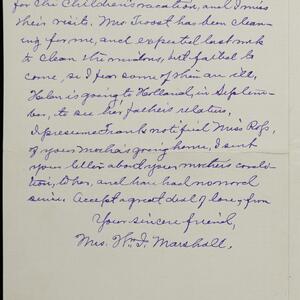 for the Children's vacation, and I miss
their visits. Mrs Troost has been clean-
ing for me, and expected last week
to clean the windows, but failed to
come, so I fear some of them are ill.
Helen is going to Holland, in Septem-
ber, to see her father's relatives,
I presume Frank notified Miss
of your mother's going home, I sent
your letter about your mother's condi-
tion, to her, and have had no word
since. Accept a great deal of love, from
Your sincere friend,
Mrs. Wm. J. Marshall.